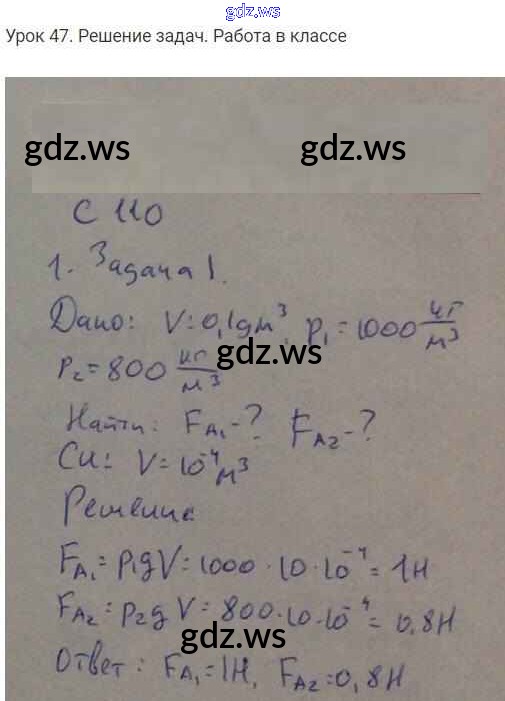 gdz.ws
Урок 47. Решение задач. Работа в классе
gdz.ws gdz.ws
С 110
1. Задача 1.
Дано: V=0,1дм³, ρ₁=1000 кг/м³
gdz.ws
ρ₂=800 кг/м³
Найти: F_A₁-? F_A₂-?
Си: V=10⁻⁴м³
Решение
F_A₁=ρ₁gV=1000·10·10⁻⁴=1Н
F_A₂=ρ₂gV=800·10·10⁻⁴=0,8Н
gdz.ws
Ответ: F_A₁=1Н, F_A₂=0,8Н